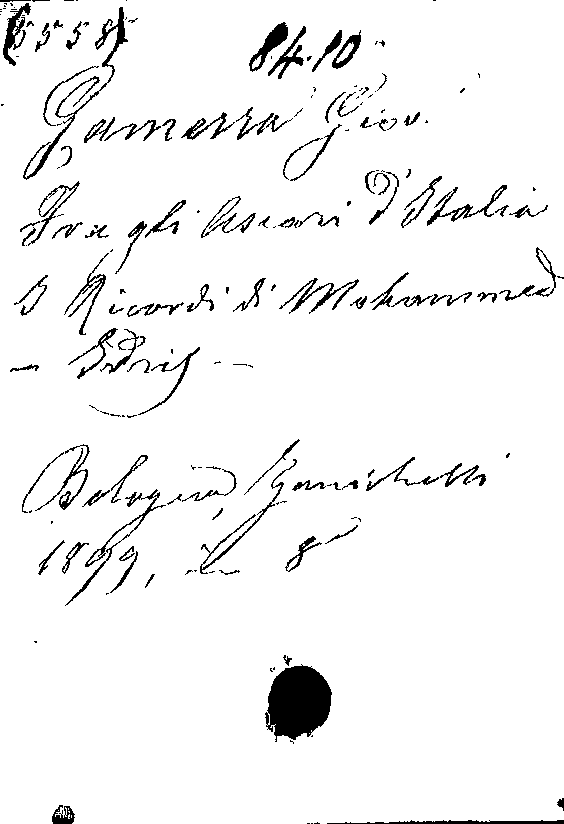 (5558)
84.10
Gamerra Giov.
Fra gli Ascari d'Italia
I Ricordi di Mohammed
- Idris -
Bologna, Zanichelli
1899, in 8°